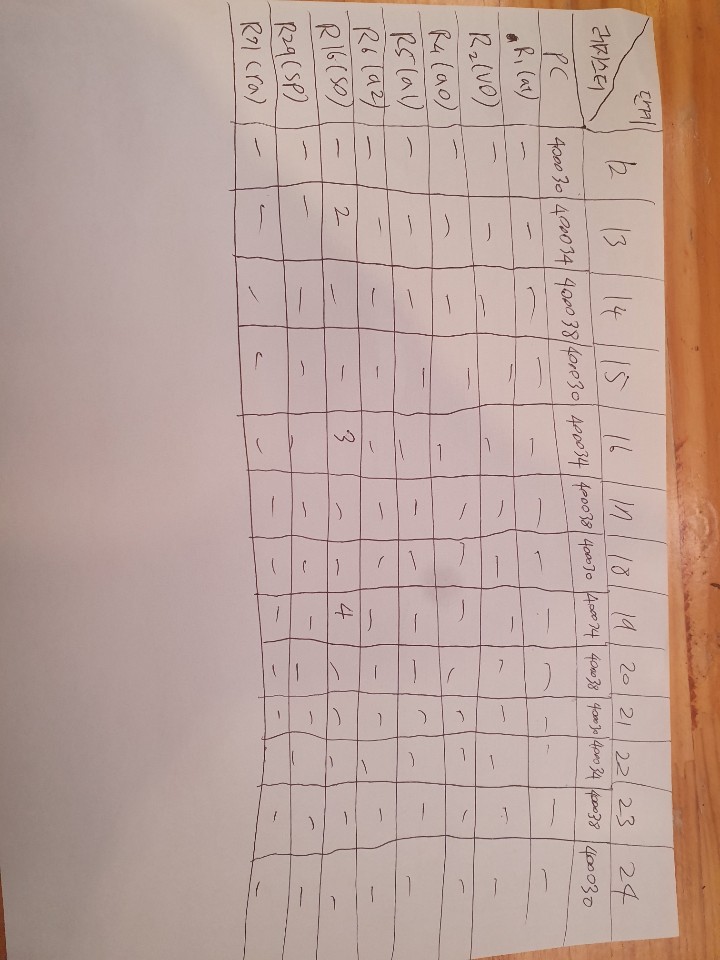 단계 12 13 14 15 16 17 18 19 20 21 22 23 24
레지스터
PC 400030 400034 400038 400030 400034 400038 400030 400034 400038 400030 400034 400038 400030
R1(at) - - - - - - - - - - - - -
R2(v0) - - - - - - - - - - - - -
R4(a0) - - - - - - - - - - - - -
R5(a1) - - - - - - - - - - - - -
R6(a2) - - - - - - - - - - - - -
R16(s0) - 2 - - 3 - - 4 - - - - -
R29(sp) - - - - - - - - - - - - -
R31(ra) - - - - - - - - - - - -